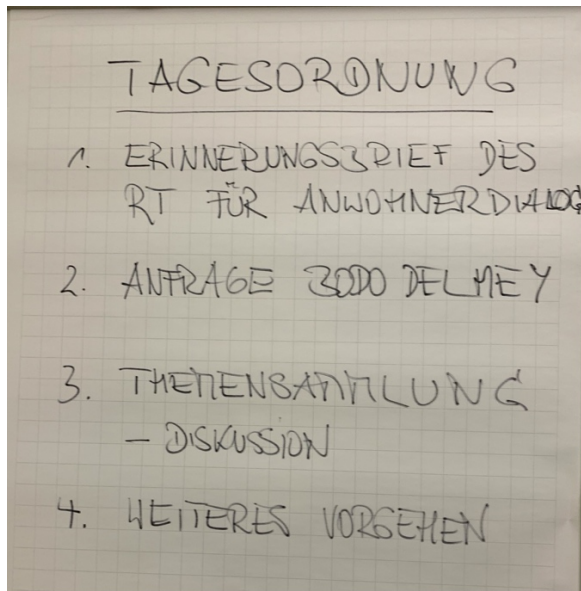 TAGESORDNUNG
1. ERINNERUNGSBRIEF DES
RT FÜR ANWOHNERDIALOG
2. ANFRAGE BODO DELMEY
3. THEMENSAMMLUNG
– DISKUSSION
4. WEITERES VORGEHEN